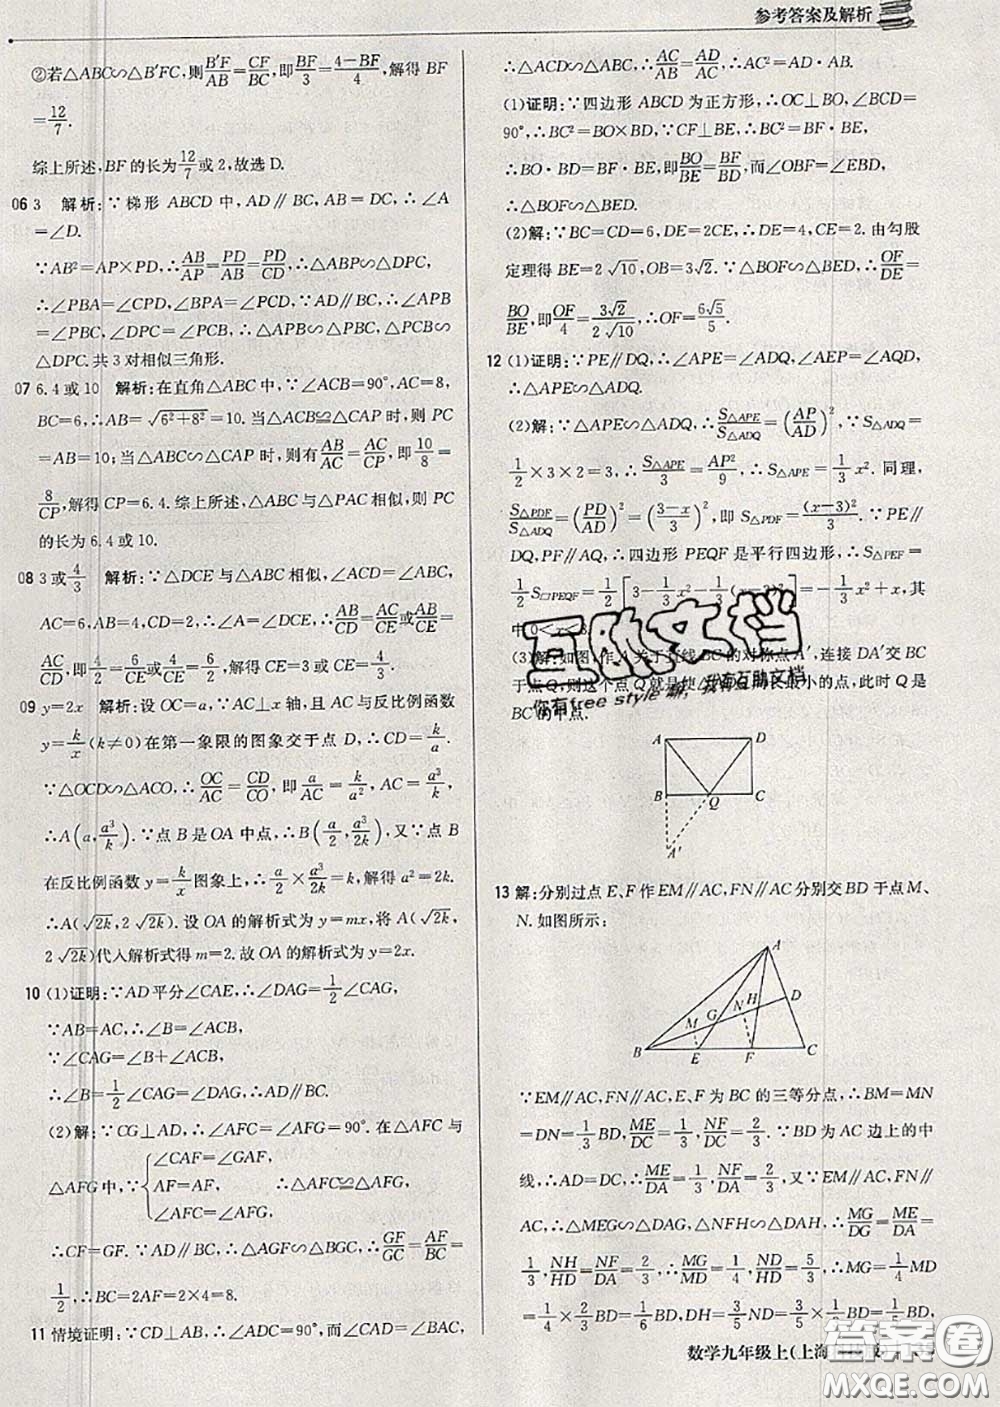 参考答案及解析
②若△ABC∽△B′FC,则B′F/AB=CF/BC,即BF/3=(4-BF)/4,解得 BF
=12/7.
综上所述,BF 的长为12/7或 2,故选 D.
06 3 解析:∵梯形 ABCD 中,AD∥BC,AB=DC,∴∠A
=∠D.
∵AB²=AP×PD,∴AB/AP=PD/AB=PD/CD,∴△ABP∽△DPC,
∴∠PBA=∠CPD,∠BPA=∠PCD.∵AD∥BC,∴∠APB
=∠PBC,∠DPC=∠PCB,∴△APB∽△PBC,△PCB∽
△DPC.共 3 对相似三角形.
07 6.4或10 解析:在直角△ABC 中,∵∠ACB=90°,AC=8,
BC=6,∴AB=√(6²+8²)=10.当△ACB≌△CAP 时,则 PC
=AB=10;当△ACB∽△CAP 时,则有AB/AC=AC/CP,即10/8=
8/CP,解得 CP=6.4.综上所述,△ABC 与△PAC 相似,则 PC
的长为 6.4 或 10.
08 3或4/3 解析:∵△DCE 与△ABC 相似,∠ACD=∠ABC,
AC=6,AB=4,CD=2,∴∠A=∠DCE,∴AB/CD=AC/CE或AB/CE=
AC/CD,即4/2=6/CE或4/CE=6/2,解得 CE=3 或 CE=4/3.
09 y=2x 解析:设 OC=a,∵AC⊥x 轴,且 AC 与反比例函数
y=k/x(k≠0)在第一象限的图象交于点 D,∴CD=k/a.
∵△OCD∽△ACO,∴OC/AC=CD/CO,即a/AC=(k/a)/a,AC=a³/k,
∴A(a,a³/k).∵点 B 是 OA 中点,∴B(a/2,a³/2k),又∵点 B
在反比例函数 y=k/x图象上,∴a/2×a³/2k=k,解得 a²=2k.
∴A(√2k,2√2k).设 OA 的解析式为 y=mx,将 A(√2k,
2√2k)代入解析式得 m=2.故 OA 的解析式为 y=2x.
10 (1)证明:∵AD 平分∠CAE,∴∠DAG=1/2∠CAG,
∵AB=AC,∴∠B=∠ACB,
∵∠CAG=∠B+∠ACB,
∴∠B=1/2∠CAG,∴∠B=∠DAG,∴AD∥BC.
(2)解:∵CG⊥AD,∴∠AFC=∠AFG=90°.在△AFC 与
△AFG 中,∵{∠CAF=∠GAF, AF=AF, ∠AFC=∠AFG, ∴△AFC≌△AFG,
∴CF=GF.∵AD∥BC,∴△AGF∽△BGC,∴GF/GC=AF/BC=
1/2,∴BC=2AF=2×4=8.
11 情境证明:∵CD⊥AB,∴∠ADC=90°,而∠CAD=∠BAC,
∴△ACD∽△ABC,∴AC/AB=AD/AC,∴AC²=AD·AB.
(1)证明:∵四边形 ABCD 为正方形,∴OC⊥BO,∠BCD=
90°,∴BC²=BO×BD,∵CF⊥BE,∴BC²=BF·BE,
∴BO·BD=BF·BE,即BO/BE=BF/BD,而∠OBF=∠EBD,
∴△BOF∽△BED.
(2)解:∵BC=CD=6,DE=2CE,∴DE=4,CE=2.由勾股
定理得 BE=2√10,OB=3√2.∵△BOF∽△BED,∴OF/DE=
BO/BE,即OF/4=3√2/2√10,∴OF=6√5/5.
12 (1)证明:∵PE∥DQ,∴∠APE=∠ADQ,∠AEP=∠AQD,
∴△APE∽△ADQ.
(2)解:∵△APE∽△ADQ,∴S△APE/S△ADQ=(AP/AD)²,∵S△ADQ=
1/2×3×2=3,∴S△APE/3=AP²/9,∴S△APE=1/3x².同理,
S△PDF/S△ADQ=(PD/AD)²=((3-x)/3)²,即 S△PDF=(x-3)²/3.∵PE∥
DQ,PF∥AQ,∴四边形 PEQF 是平行四边形,∴S△PEF=
1/2S□PEQF=1/2[3-1/3x²-1/3(x-3)²]=-1/3x²+x,其
中 0<x<3.
(3)解:如图,作 A 关于直线 BC 的对称点 A′,连接 DA′交 BC
于点 Q,则这个点 Q 就是使△ADQ 周长最小的点,此时 Q 是
BC 的中点.
A D
B Q C
A′
13 解:分别过点 E、F 作 EM∥AC,FN∥AC 分别交 BD 于点 M、
N.如图所示:
A
H D
M G N
B E F C
∵EM∥AC,FN∥AC,E、F 为 BC 的三等分点,∴BM=MN
=DN=1/3BD,ME/DC=1/3,NF/DC=2/3.∵BD 为 AC 边上的中
线,∴DC=DA,∴ME/DA=1/3,NF/DA=2/3,又∵EM∥AC,FN∥
AC,∴△MEG∽△DAG,△NFH∽△DAH,∴MG/DG=ME/DA=
1/3,NH/HD=NF/DA=2/3,∴MG/MD=1/4,ND/HD=5/3,∴MG=1/4MD
=1/4×2/3BD=1/6BD,DH=3/5ND=3/5×1/3BD=1/5BD,
互助文档
你有free style嘛,我有互助文档
数学九年级上(上海
答案圈
MXQE.COM